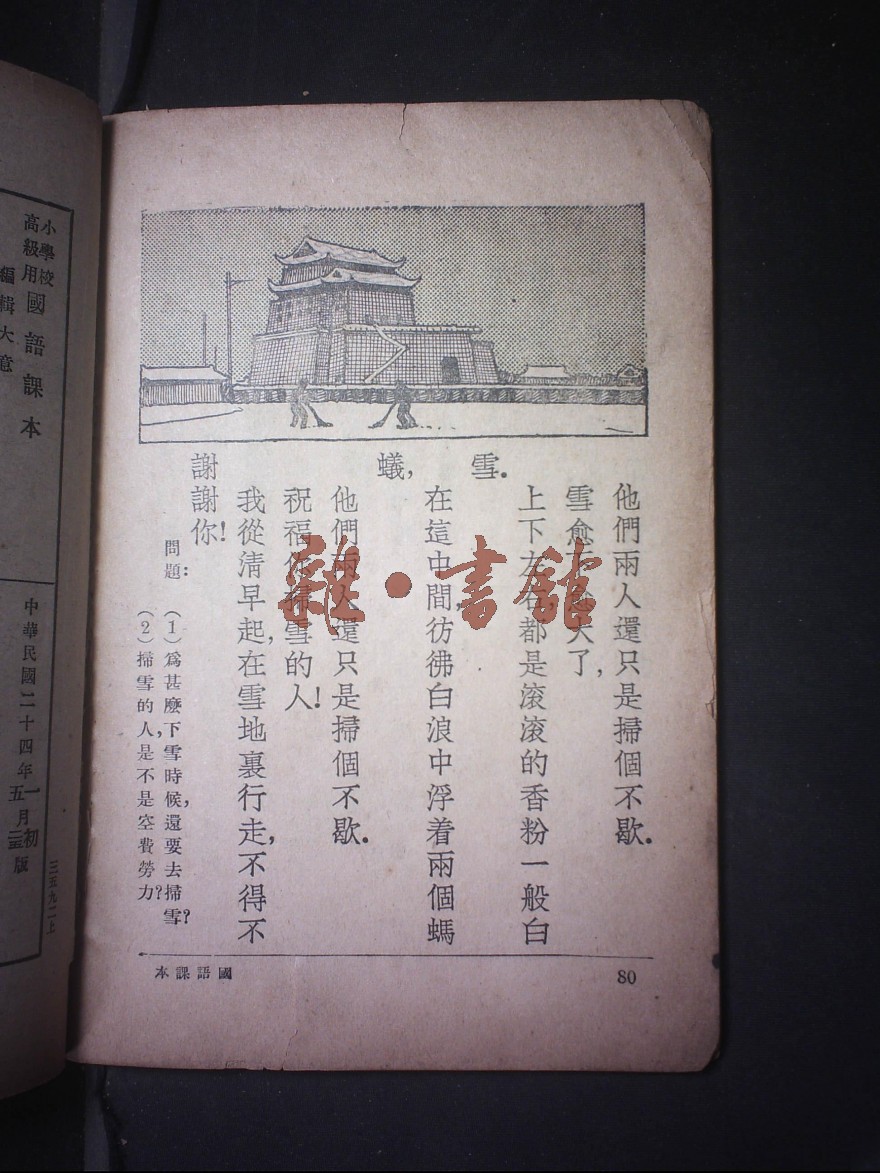 他們兩人還只是掃個不歇.
雪愈下愈大了,
上下左右,都是滾滾的香粉一般白
雪.
在這中間,彷彿白浪中浮着兩個螞
蟻,
他們兩人還只是掃個不歇.
祝福你掃雪的人!
我從清早起,在雪地裏行走,不得不
謝謝你!
問題:(1)爲甚麽下雪時候,還要去掃雪?
(2)掃雪的人,是不是空費勞力?
國語課本
80
雜·書館
小學校
高級用
國語課本
編輯大意
中華民國二十四年
三五九二上